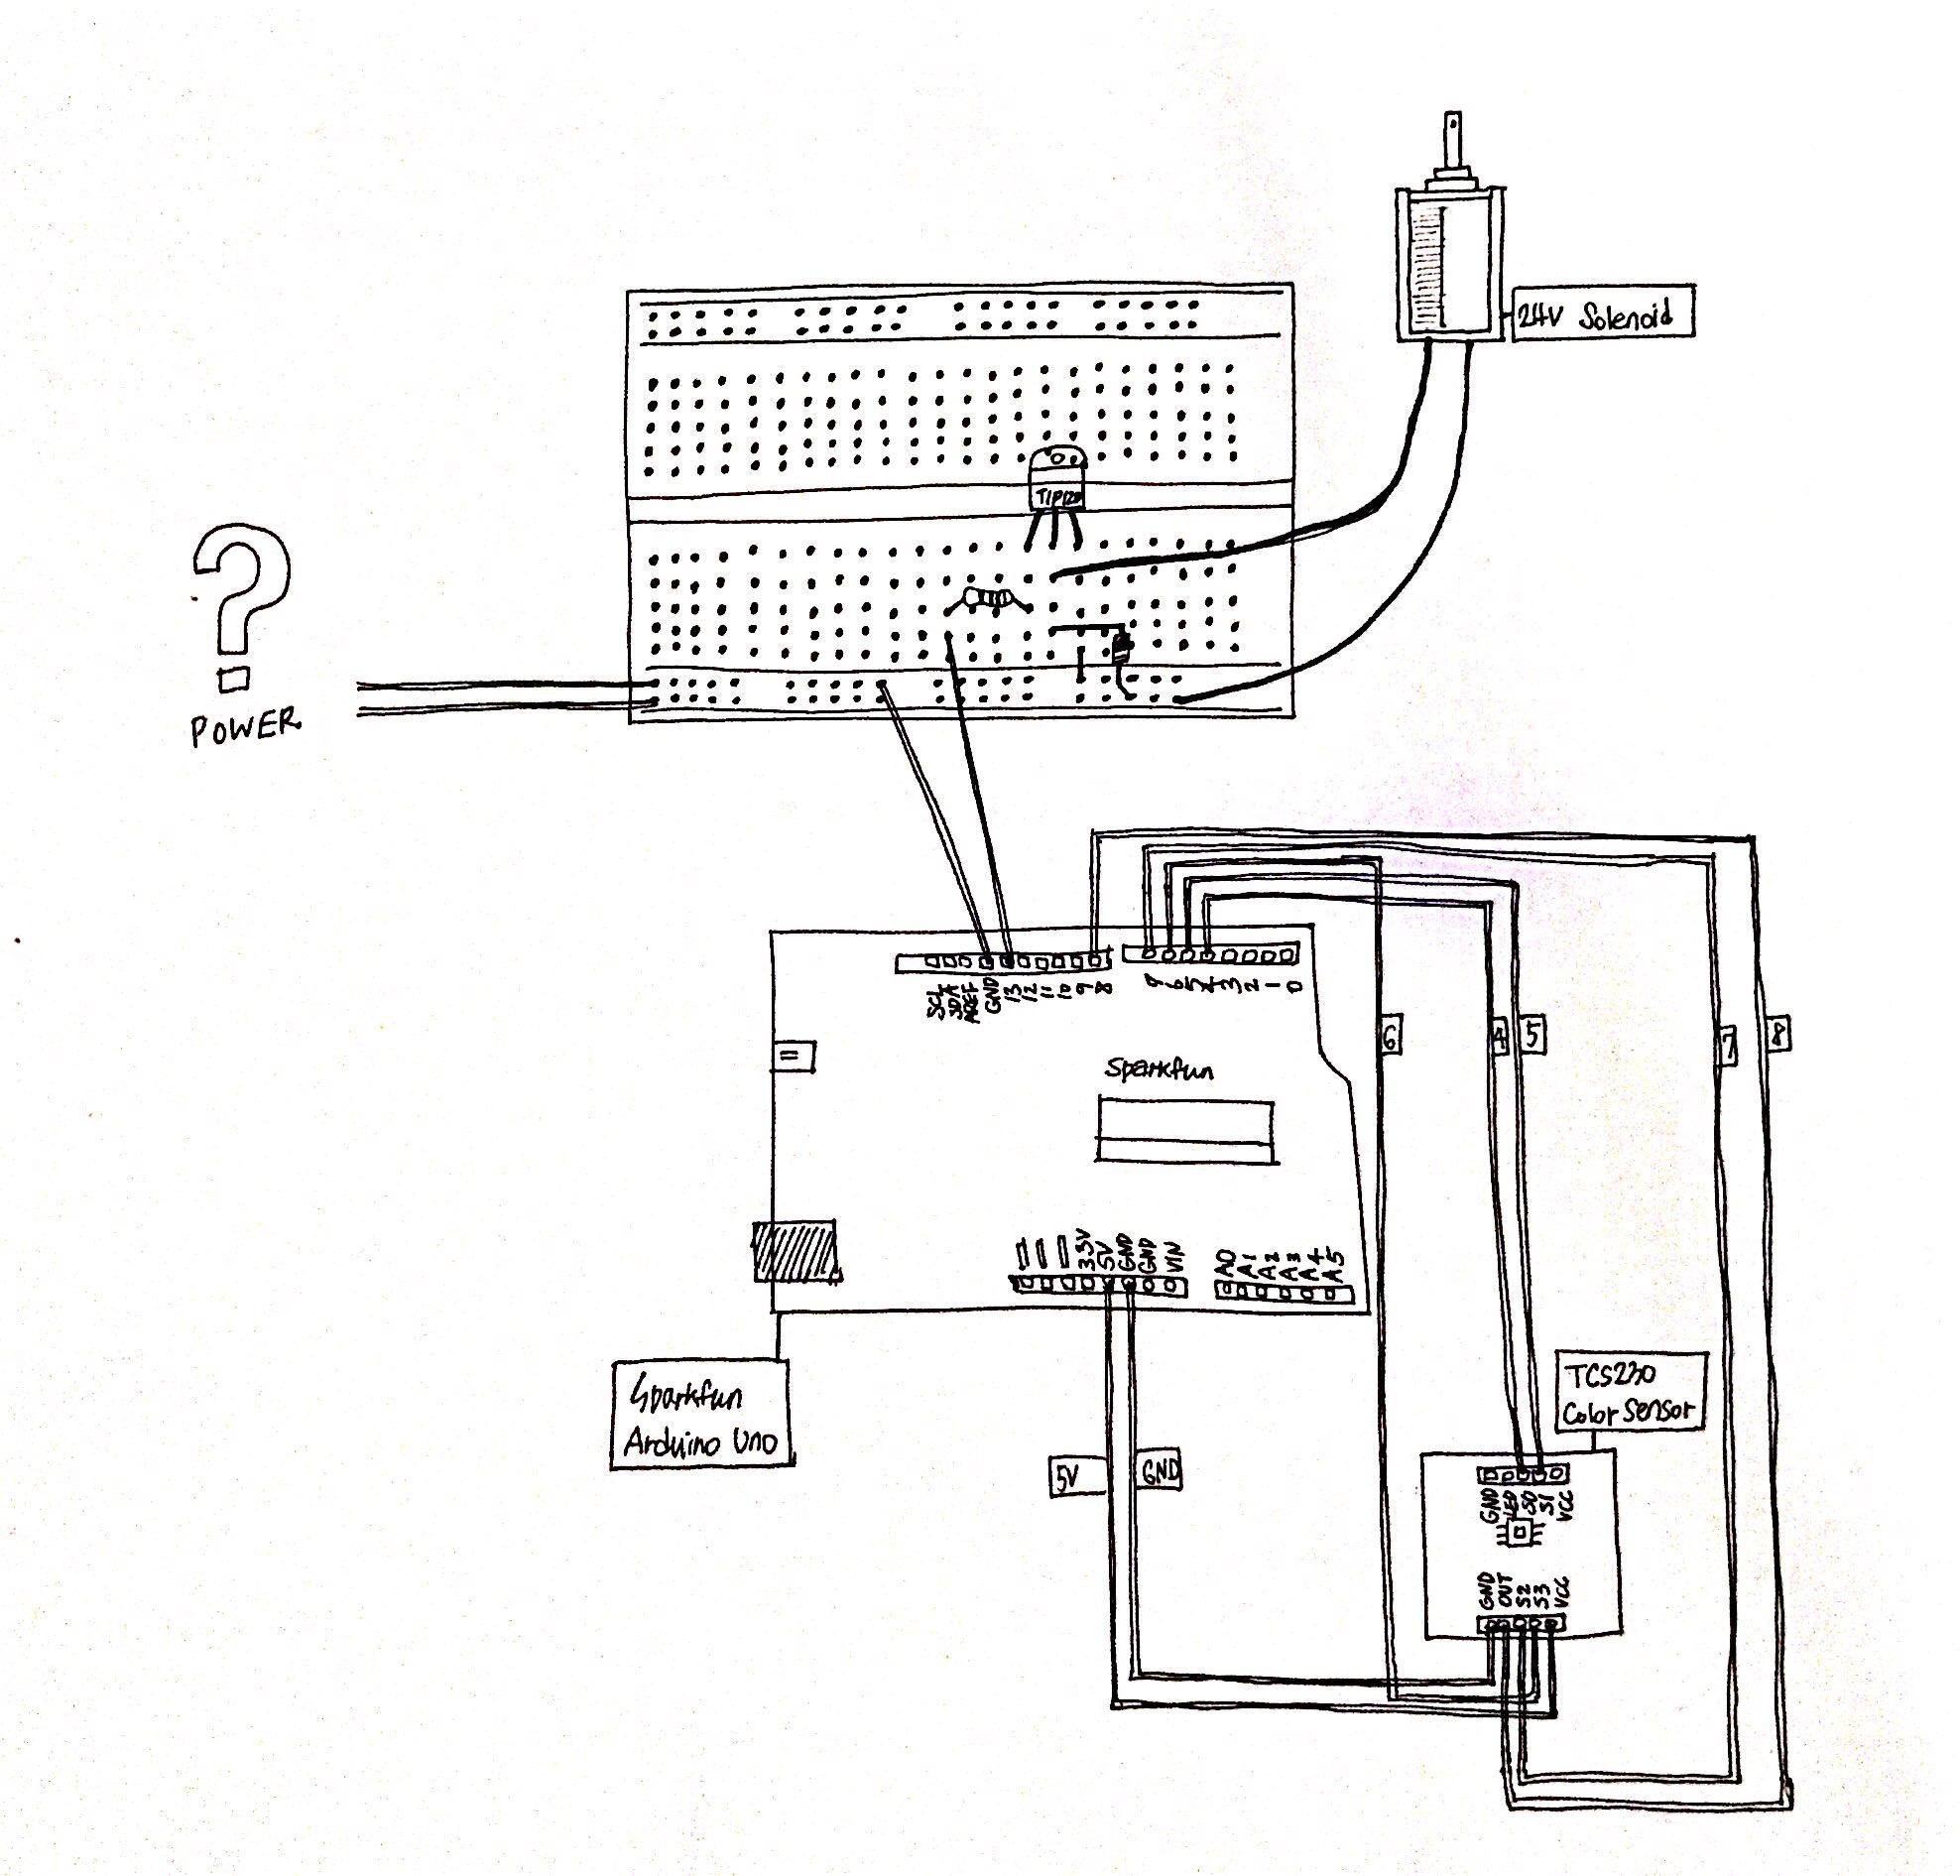 24V Solenoid
TIP120
?
POWER
SCL
SDA
AREF
GND
13
12
11
10
9
8
7
6
5
4
3
2
1
0
6
4
5
7
8
Sparkfun
3.3V
5V
GND
GND
VIN
A0
A1
A2
A3
A4
A5
Sparkfun
Arduino Uno
5V
GND
TCS230
Color Sensor
GND
LED
S0
S1
VCC
GND
OUT
S2
S3
VCC